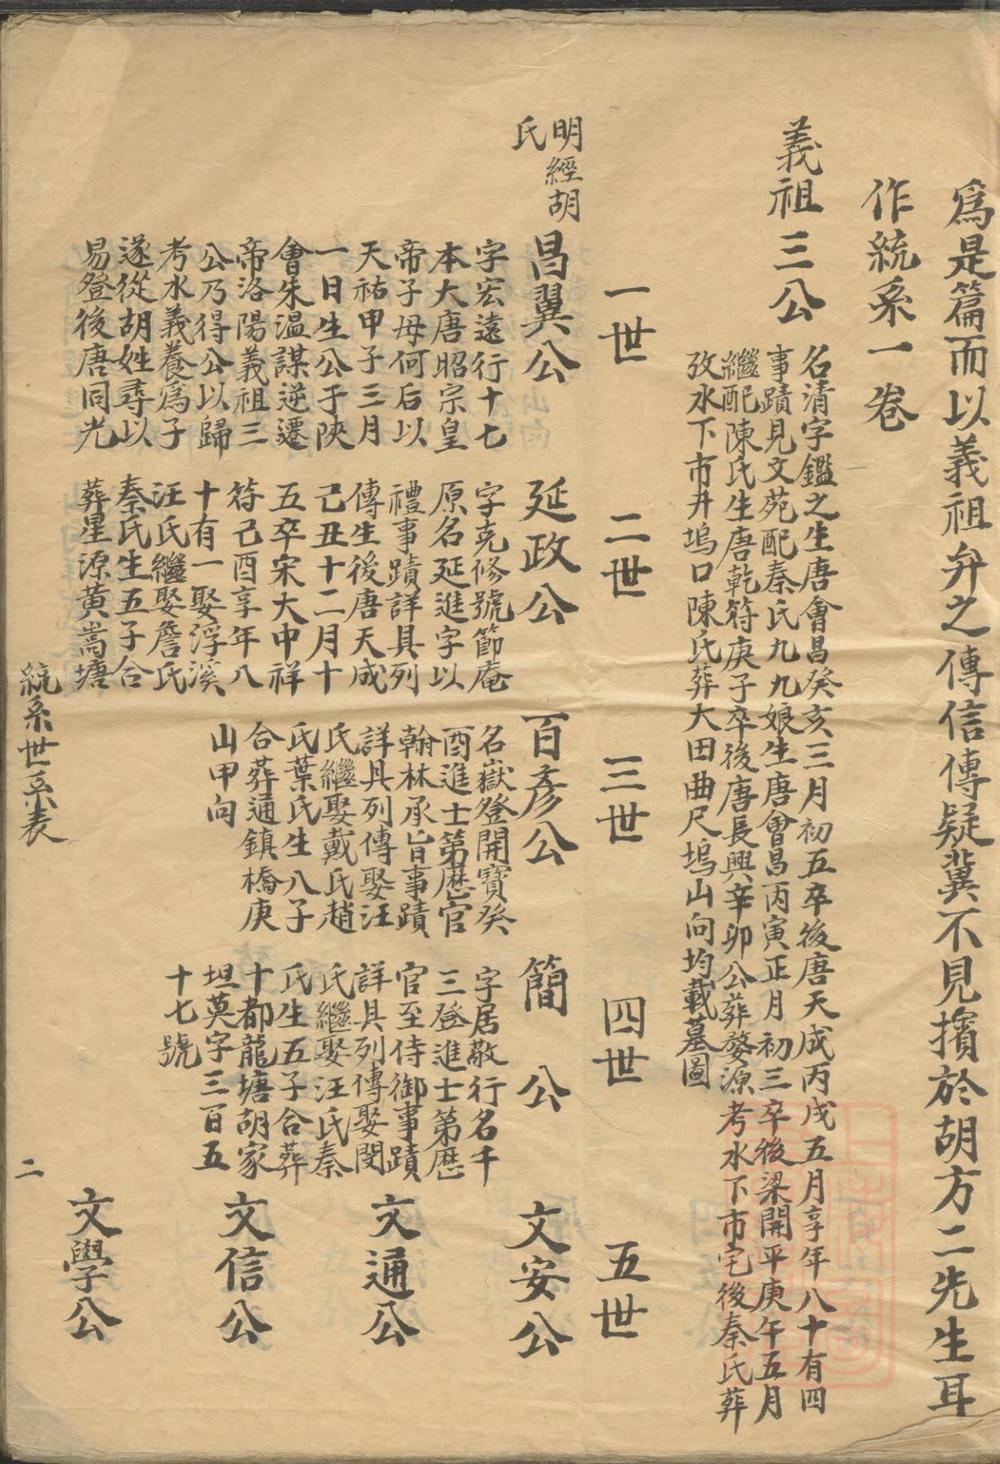 為是篇而以義祖弁之傳信傳疑冀不見擯於胡方二先生耳
作統系一卷
義祖三公
名清字鑑之生唐會昌癸亥三月初五卒後唐天成丙戌五月享年八十有四
事蹟見文苑配秦氏九九娘生唐會昌丙寅正月初三卒後梁開平庚午五月
繼配陳氏生唐乾符庚子卒後唐長興辛卯公葬婺源考水下市宅後秦氏葬
攷水下市井塢口陳氏葬大田曲尺塢山向均載墓圖
一世
二世
三世
四世
五世
明經胡
氏
昌翼公
字宏遠行十七
本大唐昭宗皇
帝子母何后以
天祐甲子三月
一日生公于陝
會朱溫謀逆遷
帝洛陽義祖三
公乃得公以歸
考水義養為子
遂從胡姓尋以
易登後唐同光
延政公
字克修號節庵
原名延進字以
禮事蹟詳具列
傳生後唐天成
己丑十二月十
五卒宋大中祥
符己酉享年八
十有一娶浮溪
汪氏繼娶詹氏
秦氏生五子合
葬星源黃嵩塘
百彥公
名嶽登開寶癸
酉進士第歷官
翰林承旨事蹟
詳具列傳娶汪
氏繼娶戴氏趙
氏葉氏生八子
合葬通鎮橋庚
山甲向
簡公
字居敬行名千
三登進士第歷
官至侍御事蹟
詳具列傳娶閔
氏繼娶汪氏秦
氏生五子合葬
十都龍塘胡家
坦莫字三百五
十七號
文安公
文通公
文信公
文學公
統系世系表
二